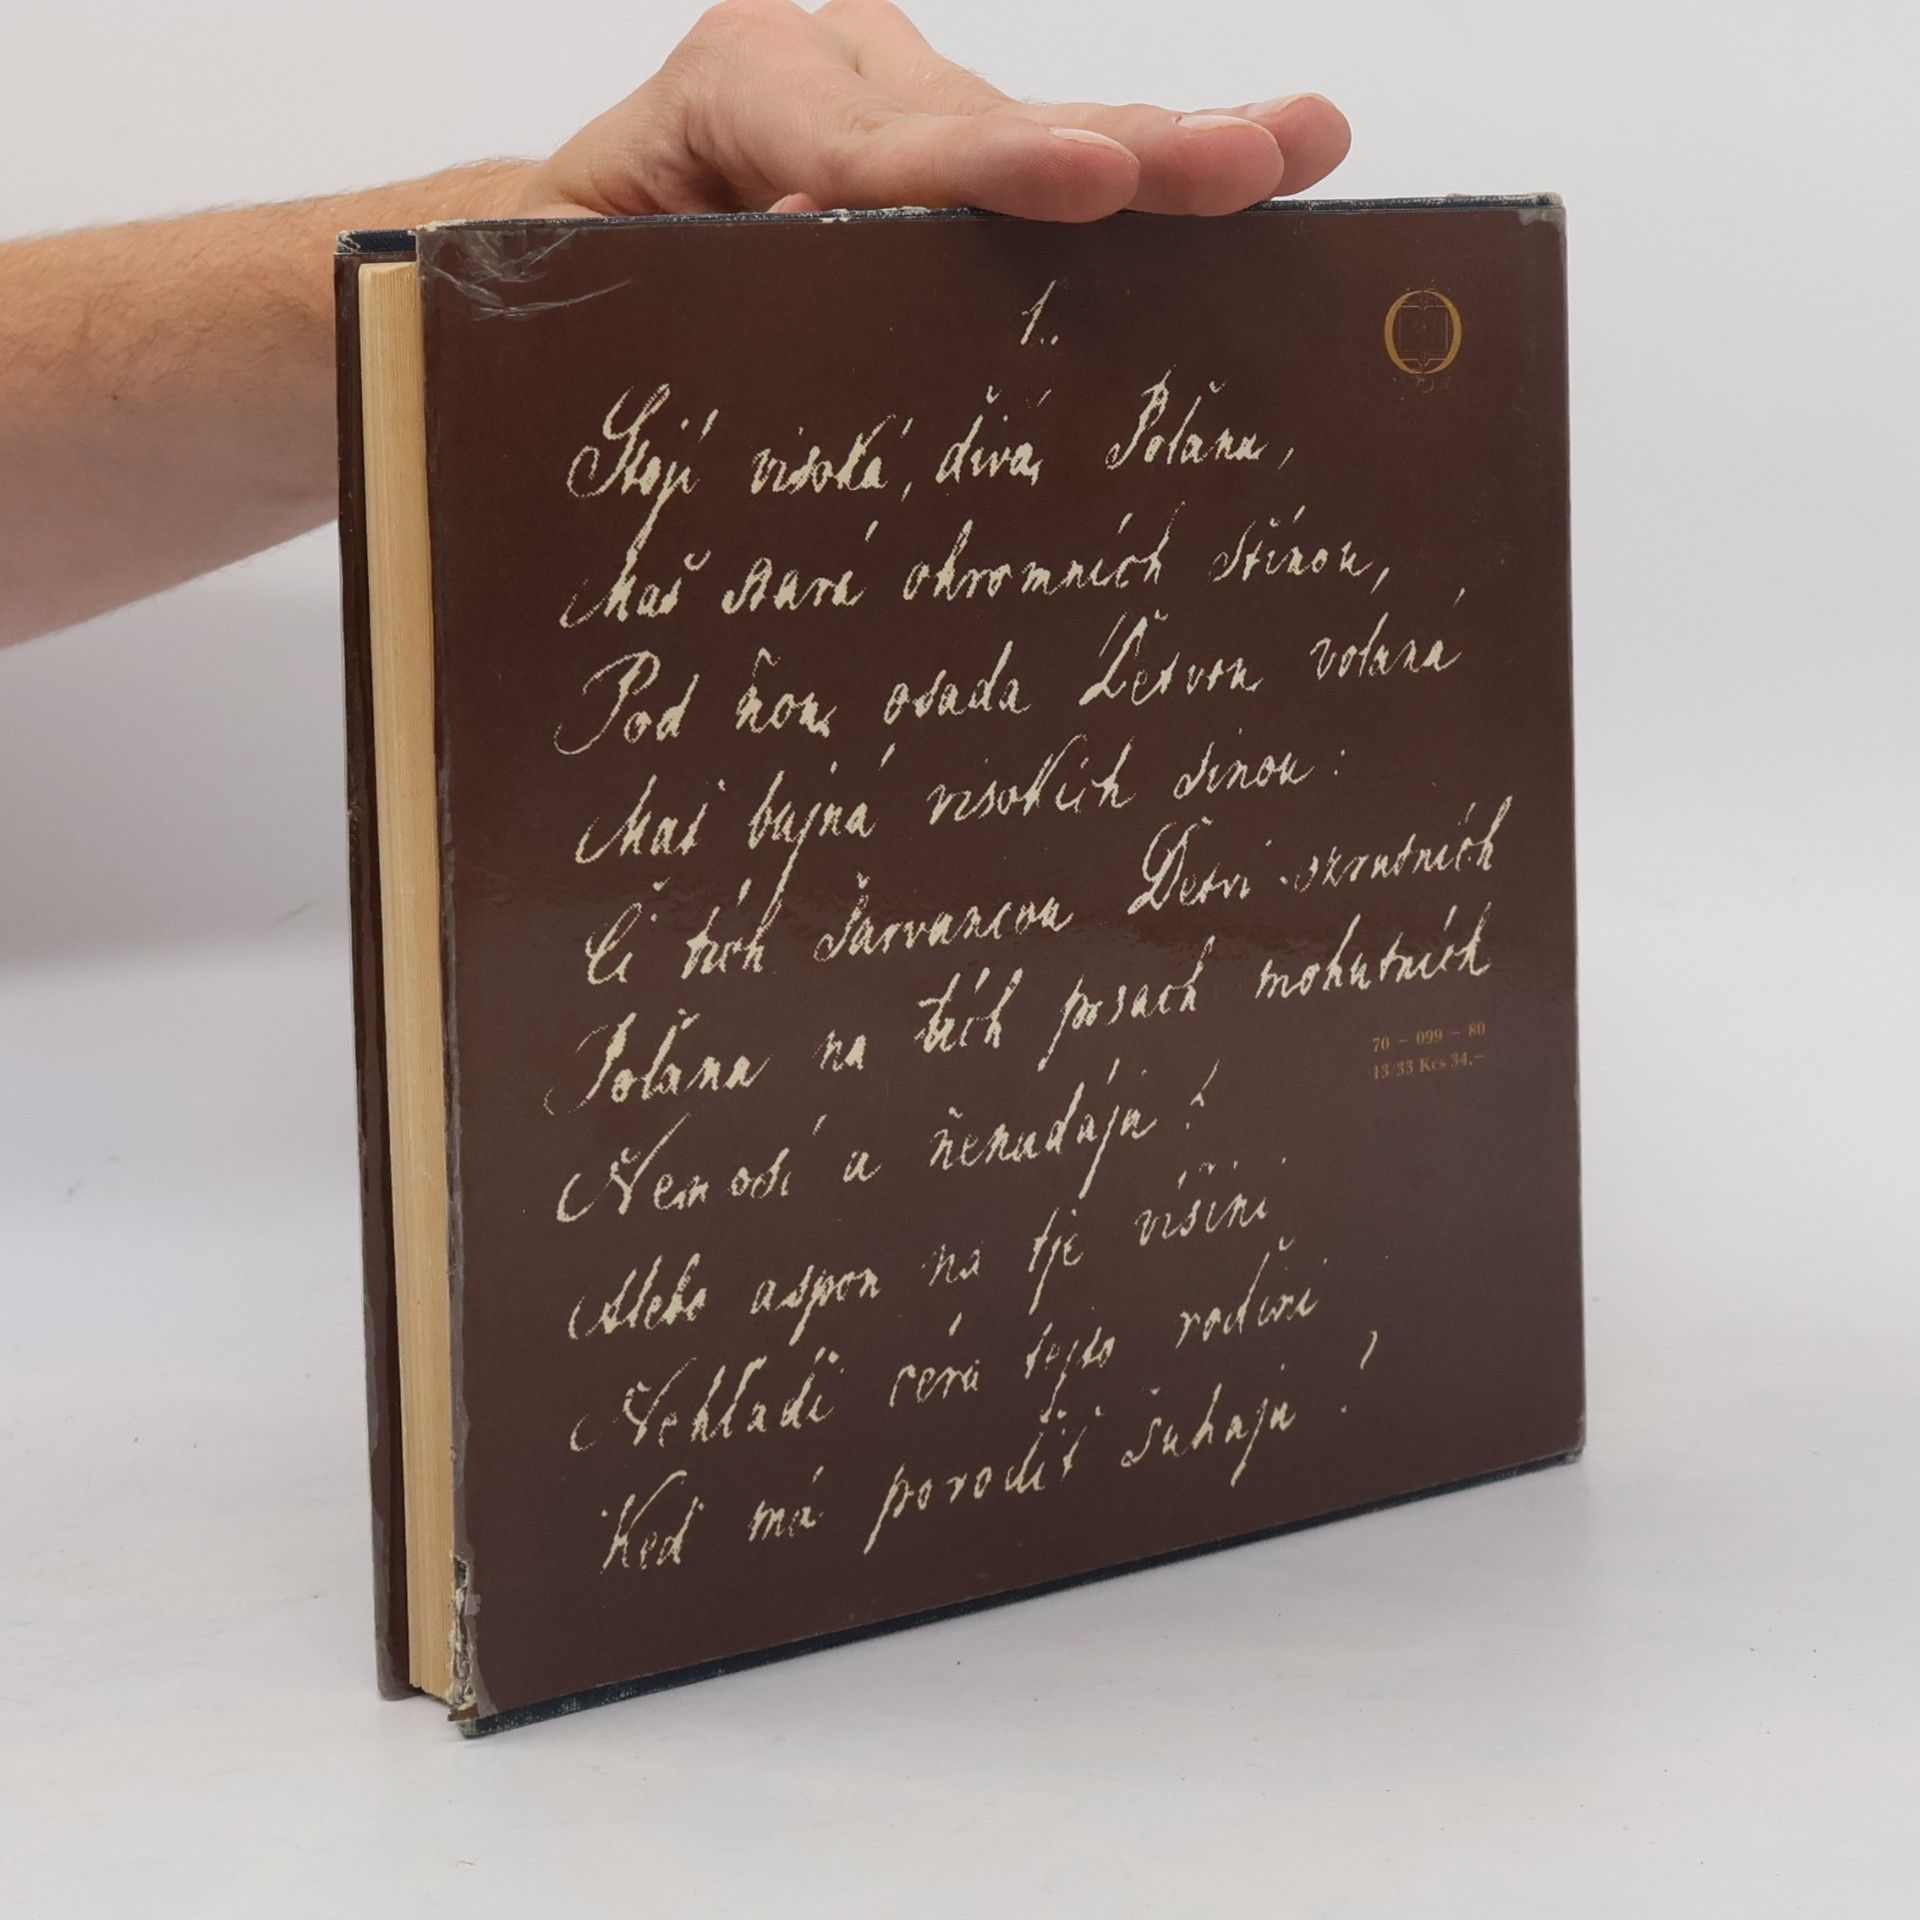 1.
Stojí visoká, ďivá Polana,
Mať stará ohromních stínou,
Pod ňou osada Ďetvou volaná
Mať bujná visokích sinou:
Či tích šarvancou Ďetvi ozrutních
Polana na tích prsach mohutních
Ňenosí a ňenadája?
Alebo aspon na tje víšini
Ňehladí céra tejto roďini
Keď má poroďiť šuhaja?
70 – 099 – 80
13/33 Kčs 34,–